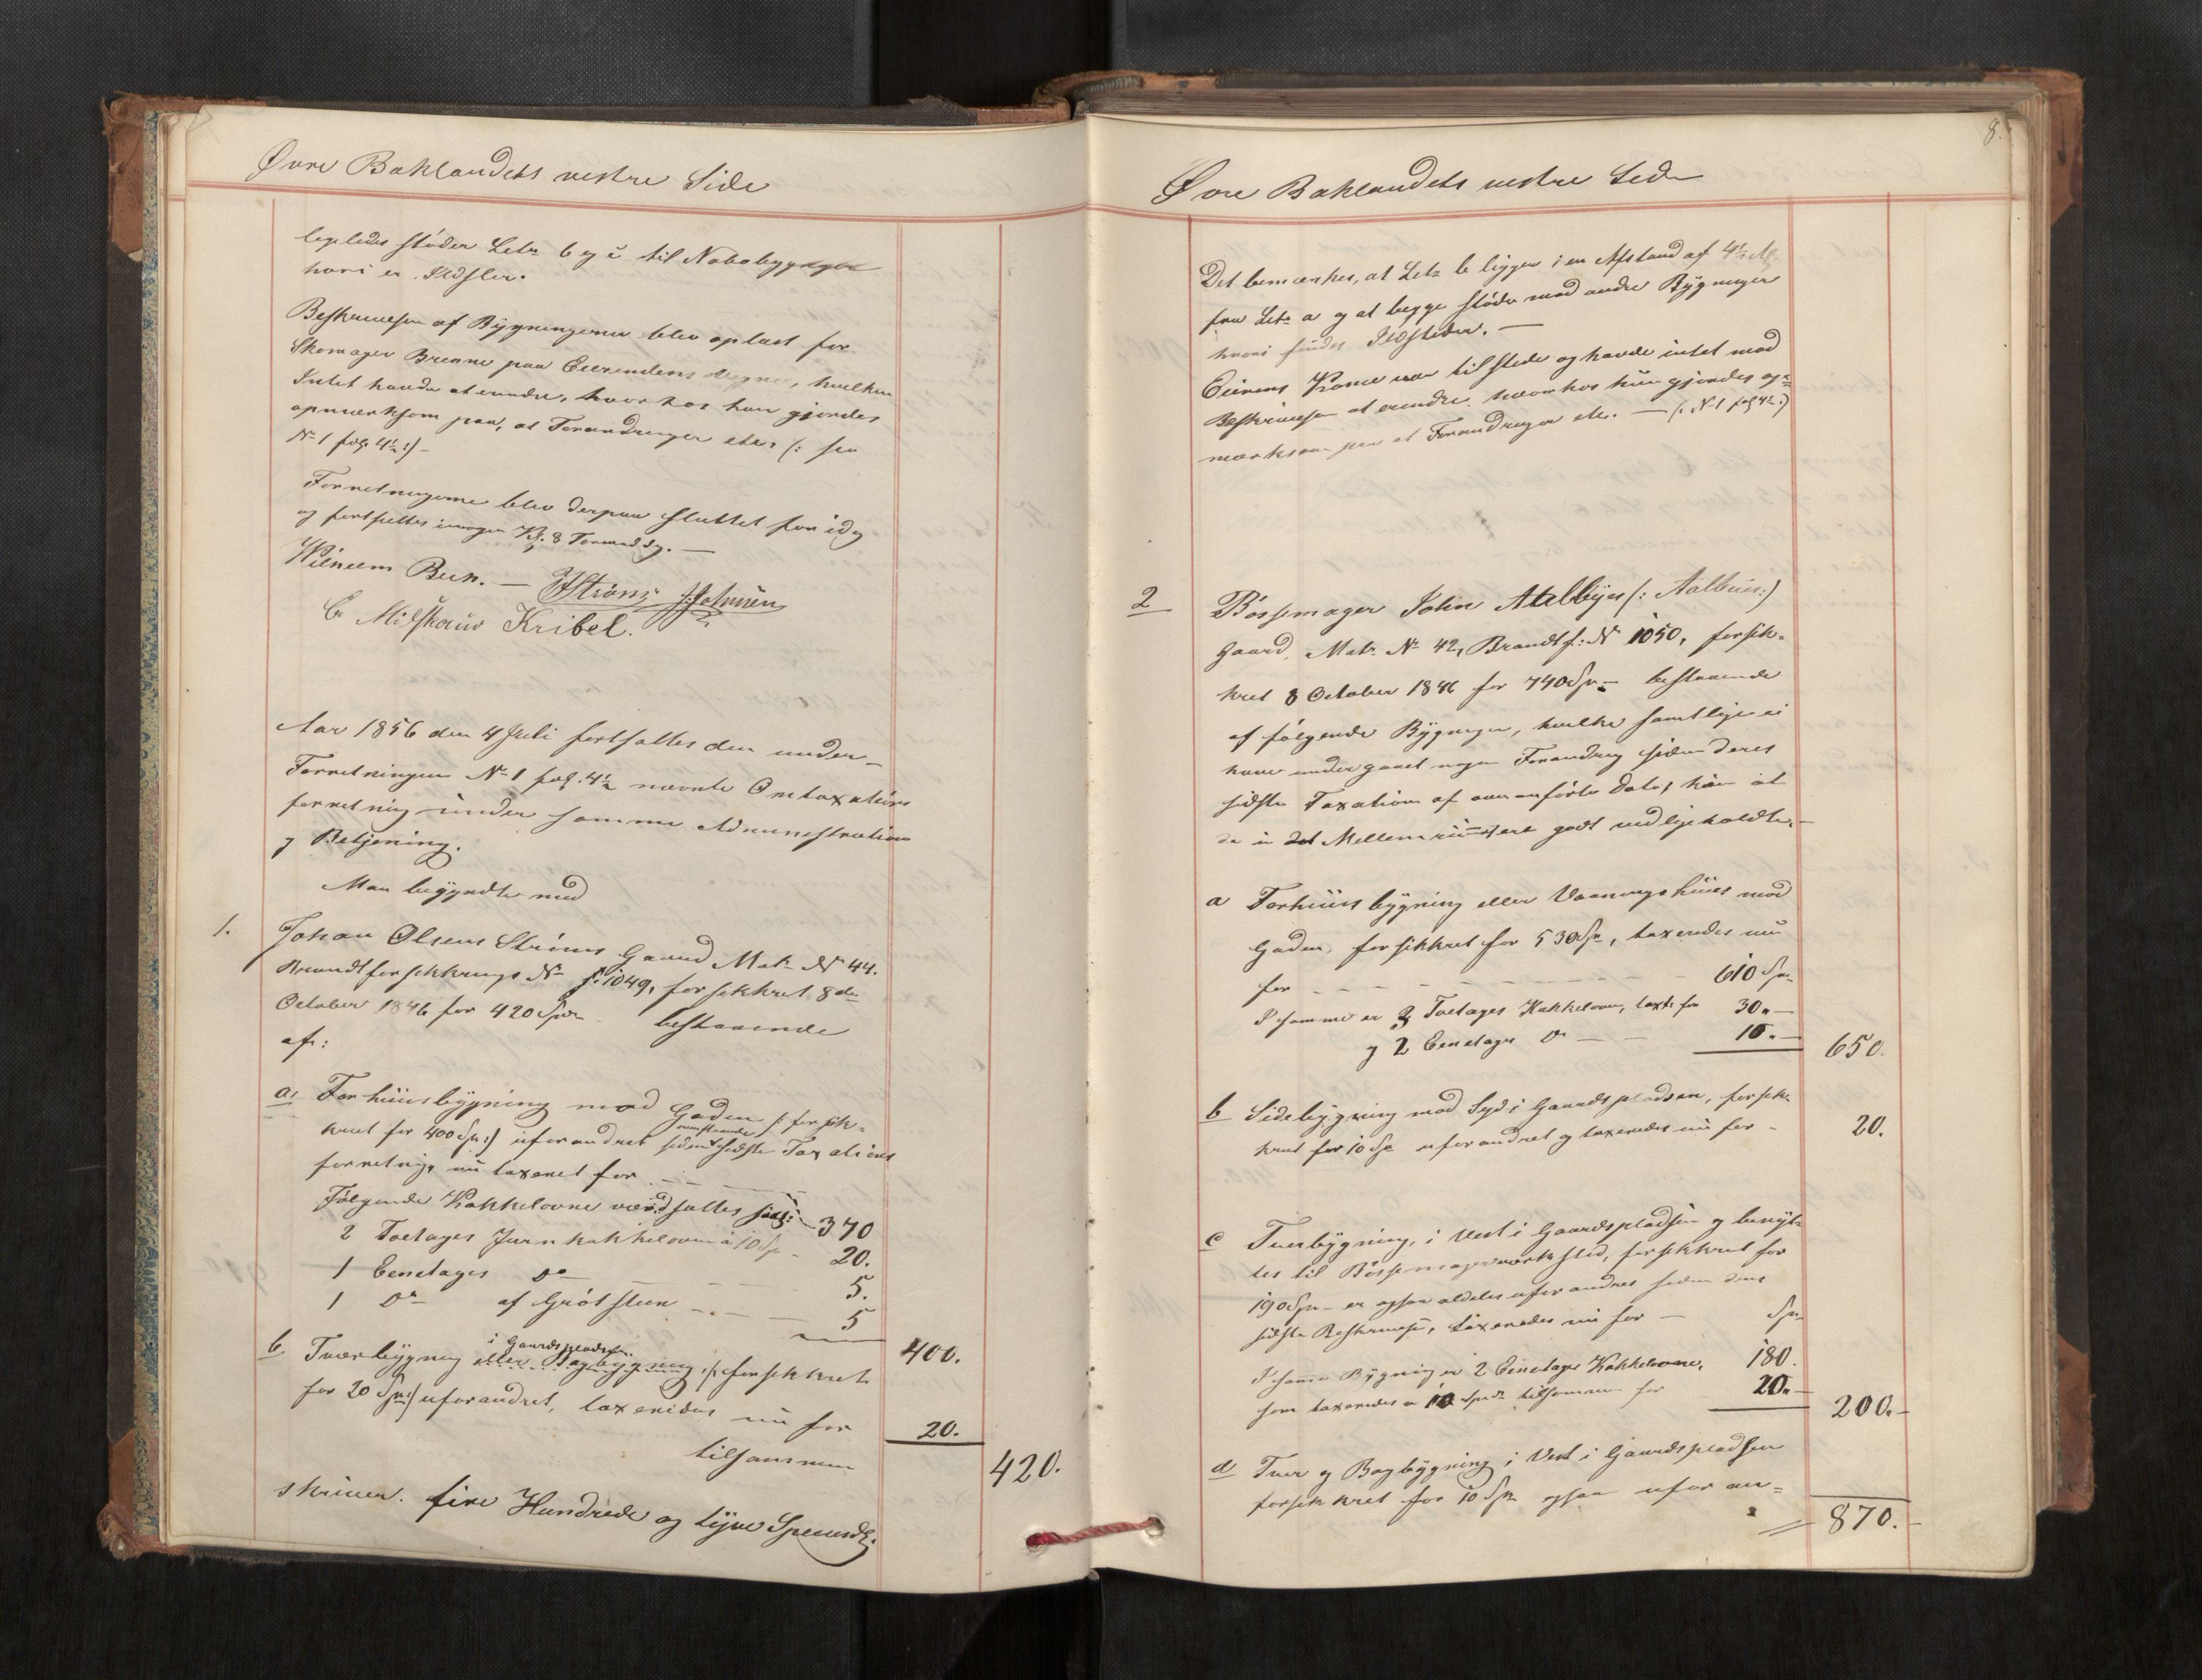 Øvre Baklandets vestre Side
ligeledes støder Litr b og c til Nabobygninger
hvori er Ildsteder.
Beskrivelsen af Bygningerne blev oplæst for
Skomager Brenne paa Eierindens Vegne, hvilken
Intet havde at erindre, hvorhos han gjordes
opmærksom paa, at Forandringer etc. (: see
No 1 fol. 4½ :) -
Forretningerne blev derpaa sluttet for idag
og fortsættes imorgen Kl. 8 Formiddag. —
Wilhelm Beck. — Strøm
C. Kribel.
Aar 1856 den 4 Juli fortsattes den under
Forretningen No 1 fol. 4½ nævnte Omtaxations
forretning under samme Administration
og Betjening.
Man begyndte med
1. Johan Olsens Strøms Gaard Matr. No 44.
Brandtforsikkrings No 1049, forsikkret 8de
October 1846 for 420 Spd. bestaaende
af:
a, Forhuusbygning mod Gaden (: forsik-
kret for 400 Spd :) uforandret siden ovenstaaende sidste Taxations
forretning, nu taxeret for
Følgende Kakkelovne værdsattes saal: 370
2 Toetages Jernkakkelovne à 10 Spd - 20.
1 Eenetages Do — 5.
1 Do af Grötsteen — 5
400.
b Tværbygning i Gaardspladsen eller Bagbygning (: forsikkret
for 20 Spd :) uforandret, taxeredes nu for
20.
tilsammen
420.
skriver. fire Hundrede og tyve Speciedlr.
8.
Øvre Baklandets vestre Side
Det bemærkes, at Litr b ligger i en Afstand af 4½ Al.
fra Litr a og at begge støde mod andre Bygninger
hvori findes Ildsteder. —
Eierens Kone var tilstede og havde intet mod
Beskrivelsen at erindre, hvorhos hun gjordes op-
mærksom paa at Forandringer etc. — (: No 1 fol 4½ :)
2 Bössemager John Aalbyes (: Aalbues :)
Gaard, Matr. No 42, Brandtf: No 1050, forsik-
kret 8 October 1846 for 740 Spd - bestaaende
af følgende Bygninger, hvilke samtlige ei
have undergaaet nogen Forandring siden deres
sidste Taxation af ovenanførte Dato, kun at
de i det Mellemrum ere godt vedligeholdte. -
a Forhuusbygning eller Vaaningshuus mod
Gaden, forsikkret for 530 Spd, taxeredes nu
for - - - - 610 Spd
I samme er 3 Toetages Kakkelovne, taxt: for 30 „ —
og 2 Eenetages Do — — 10. —
650.
b Sidebygning mod Syd i Gaardspladsen, forsik-
kret for 10 Spd uforandret og taxeredes nu for -
20.
c Tverbygning, i Vest i Gaardspladsen og benyt-
tes til Bössemagerværksted, forsikkret for
190 Spd - er ogsaa aldeles uforandret siden dens
sidste Beskrivelse, taxeredes nu for — Spd
180.
I samme Bygning er 2 Eenetages Kakkelovne,
som taxeredes a 10 Spd. tilsammen for 20 „ —
200. -
d Tver og Bagbygning i Vest i Gaardspladsen
forsikkret for 10 Spd ogsaa uforan=
870. -